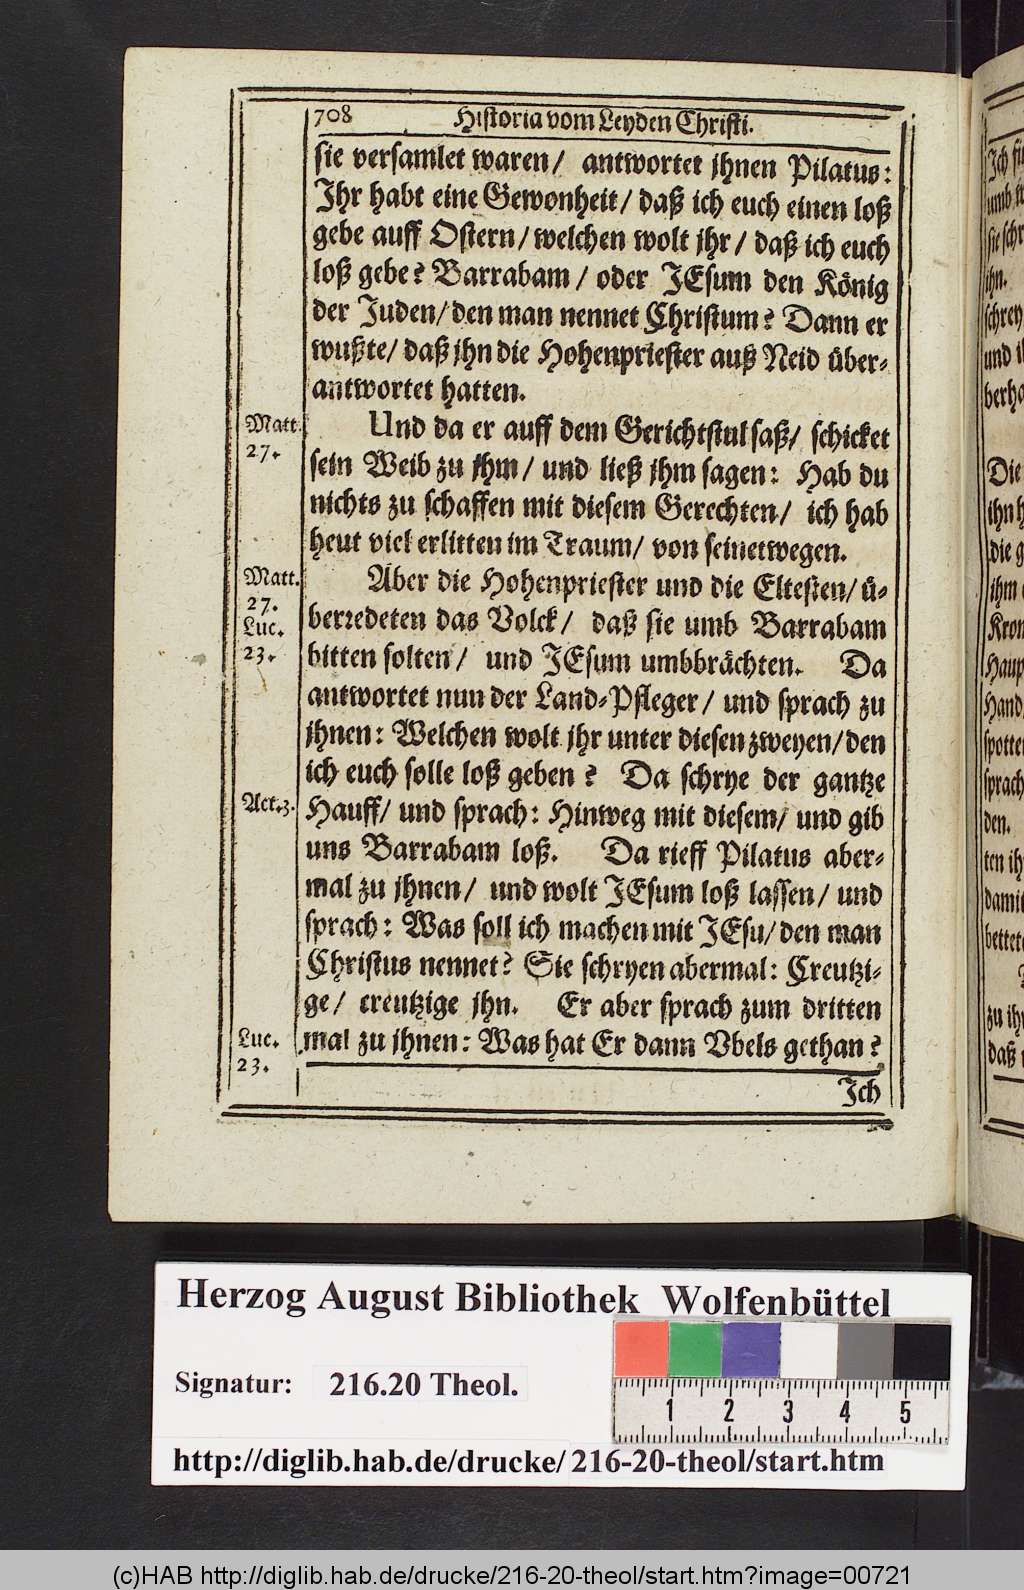 708 Historia vom Leyden Christi.
sie versamlet waren/ antwortet jhnen Pilatus:
Ihr habt eine Gewonheit/ daß ich euch einen loß
gebe auff Ostern/ welchen wolt jhr/ daß ich euch
loß gebe? Barrabam/ oder JEsum den König
der Juden/ den man nennet Christum? Dann er
wußte/ daß jhn die Hohenpriester auß Neid über-
antwortet hatten.
Matt. 27.
Und da er auff dem Gerichtstul saß/ schicket
sein Weib zu jhm/ und ließ jhm sagen: Hab du
nichts zu schaffen mit diesem Gerechten/ ich hab
heut viel erlitten im Traum/ von seinetwegen.
Matt.
27.
Luc.
23.
Aber die Hohenpriester und die Eltesten/ ü-
berredeten das Volck/ daß sie umb Barrabam
bitten solten/ und JEsum umbbrächten. Da
antwortet nun der Land-Pfleger/ und sprach zu
jhnen: Welchen wolt jhr unter diesen zweyen/ den
ich euch solle loß geben? Da schrye der gantze
Act. 3.
Hauff/ und sprach: Hinweg mit diesem/ und gib
uns Barrabam loß. Da rieff Pilatus aber-
mal zu jhnen/ und wolt JEsum loß lassen/ und
sprach: Was soll ich machen mit JEsu/ den man
Christus nennet? Sie schryen abermal: Creutzi-
ge/ creutzige jhn. Er aber sprach zum dritten
Luc.
23.
mal zu jhnen: Was hat Er dann Vbels gethan?
Ich
Herzog August Bibliothek Wolfenbüttel
Signatur: 216.20 Theol.
1 2 3 4 5
http://diglib.hab.de/drucke/216-20-theol/start.htm
(c)HAB http://diglib.hab.de/drucke/216-20-theol/start.htm?image=00721